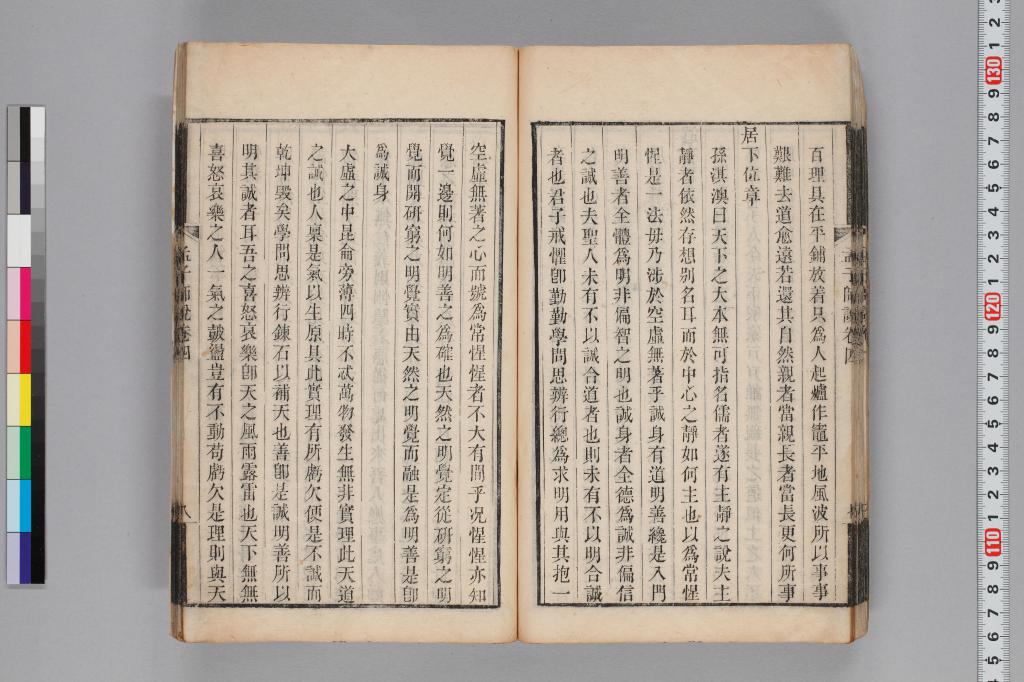 百理具在平鋪放着只為人起爐作竈平地風波所以事事
艱難去道愈遠若還其自然親者當親長者當長更何所事
居下位章
孫淇澳曰天下之大本無可指名儒者遂有主靜之說夫主
靜者依然存想别名耳而於中心之靜如何主也以為常惺
惺是一法毋乃涉於空虛無著乎誠身有道明善纔是入門
明善者全體為明非偏智之明也誠身者全德為誠非偏信
之誠也夫聖人未有不以誠合道者也則未有不以明合誠
者也君子戒懼卽勤勤學問思辨行總為求明用與其抱一
孟子師說卷四
空虛無著之心而號為常惺惺者不大有間乎况惺惺亦知
覺一邊則何如明善之為確也天然之明覺定從研窮之明
覺而開研窮之明覺實由天然之明覺而融是為明善是卽
為誠身
大虛之中昆侖旁薄四時不忒萬物發生無非實理此天道
之誠也人稟是氣以生原具此實理有所虧欠便是不誠而
乾坤毀矣學問思辨行鍊石以補天也善卽是誠明善所以
明其誠者耳吾之喜怒哀樂卽天之風雨露雷也天下無無
喜怒哀樂之人一氣之鼓盪豈有不動苟虧欠是理則與天
孟子師說卷四
八
130
120
110